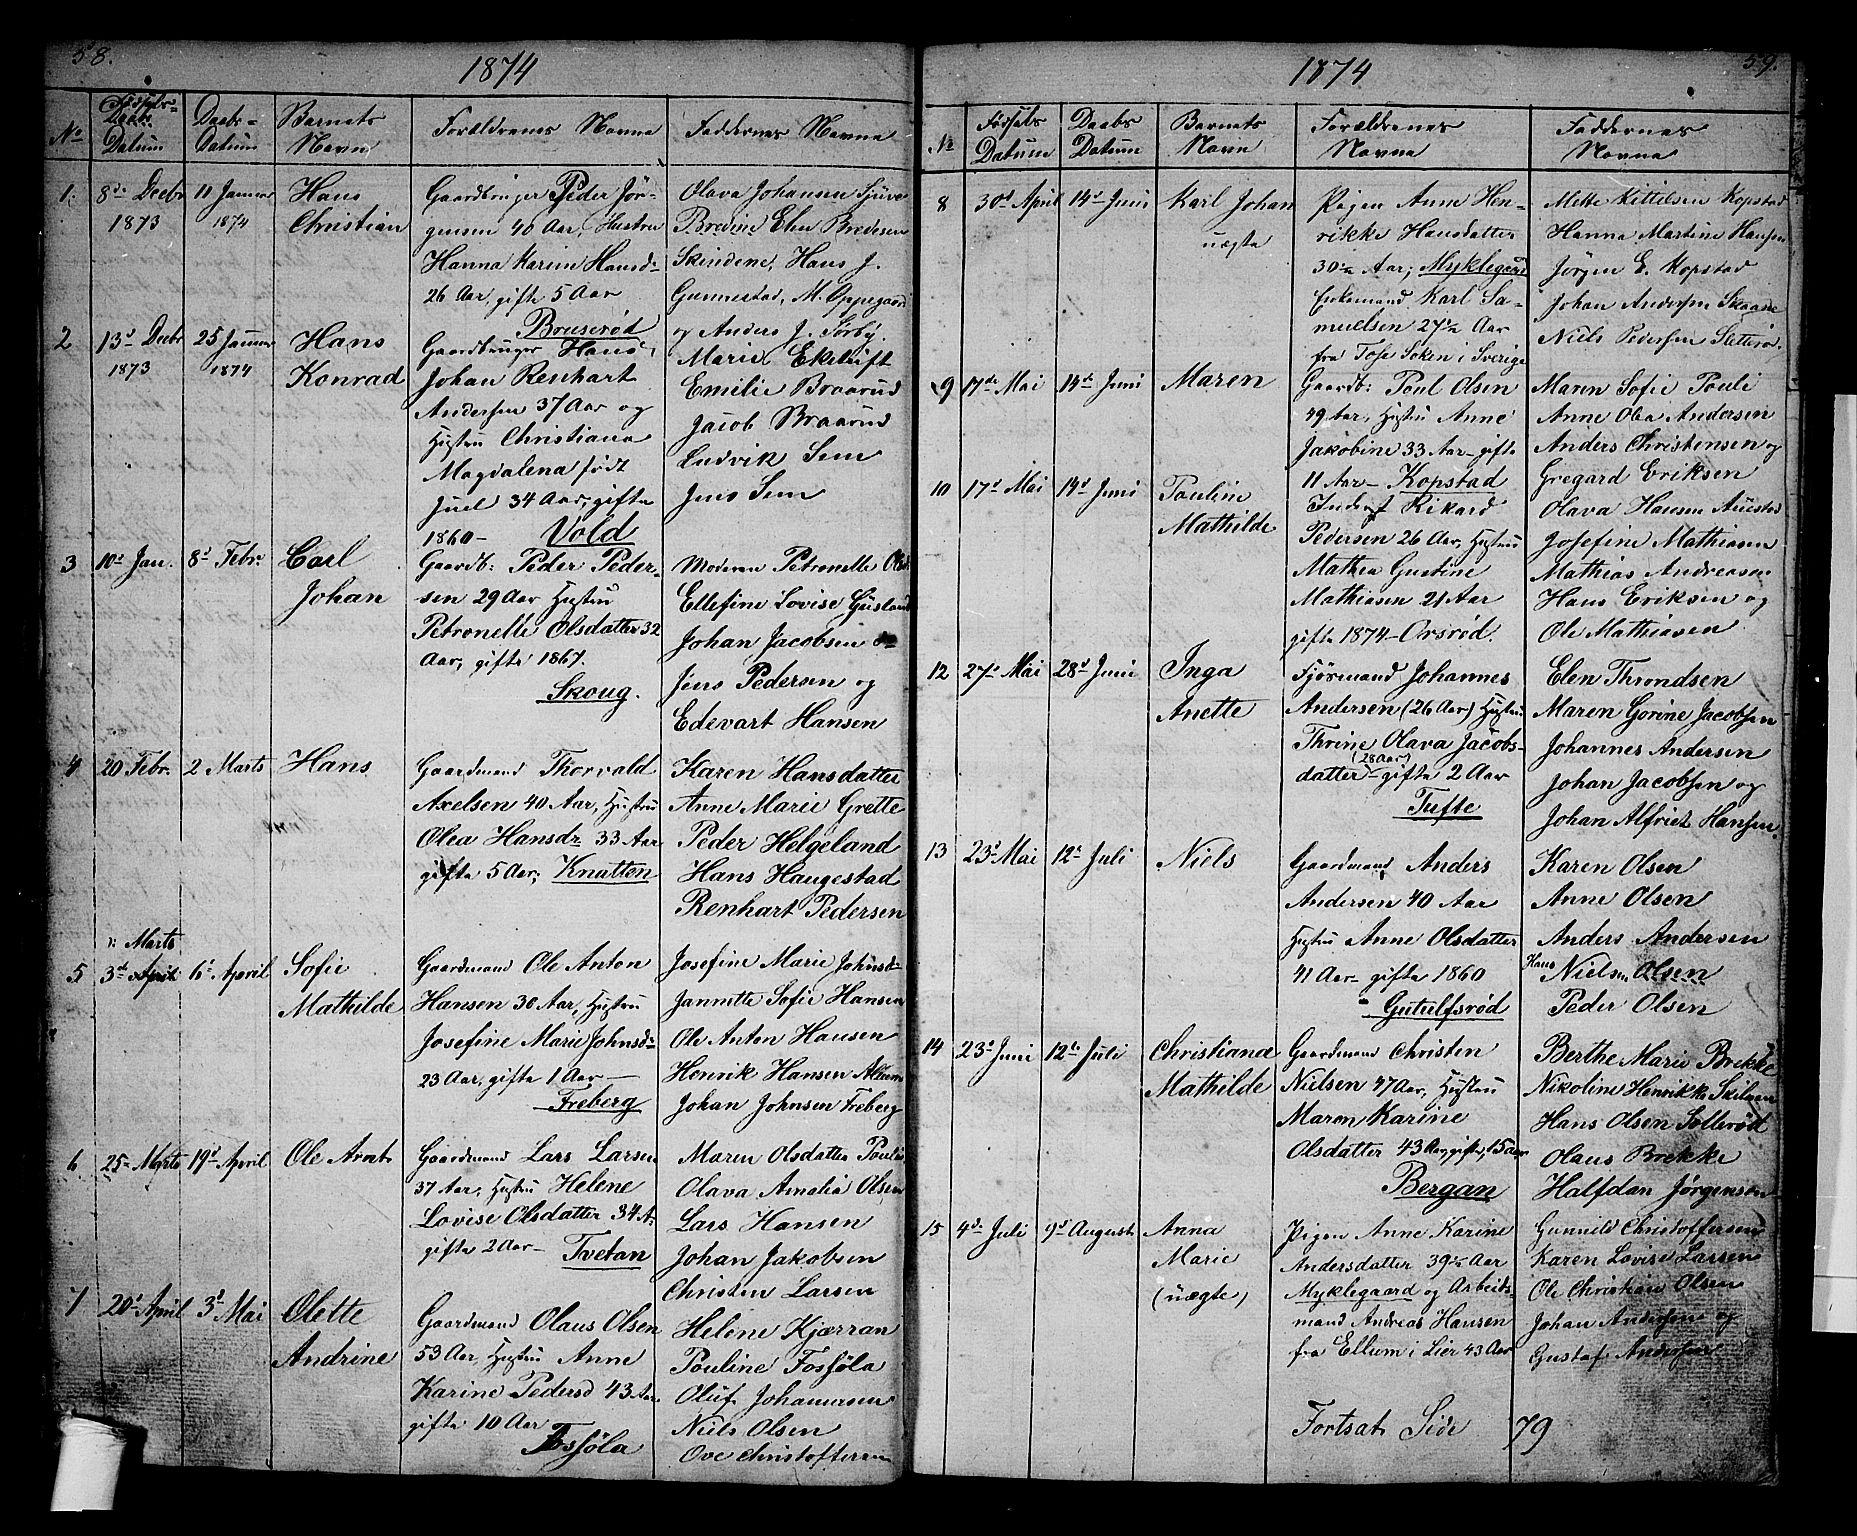 58.
1874
No
Fødsels-
Datum
Daabs-
Datum
Barnets
Navn
Forældrenes Navne
Faddernes Navne
1.
8de Decbr
1873
11 Januar
1874
Hans
Christian
Gaardbruger Peder Jør-
gensen 40 Aar, Hustru
Hanna Karine Hansd:
26 Aar, gifte 5 Aar
Bruserød
Olava Johansen
Bredine Elen Bredesen
Skindene, Hans J.
Gunnestad, M. Oppegaard
og Anders J. Sørby.
2
13d Decbr
1873
25 Januar
1874
Hans
Konrad
Gaardbruger Hans
Johan Renhart
Andersen 37 Aar og
Hustru Christiana
Magdalena født
Juel 34 Aar, gifte
1860 - Vold
Marie Ekedrift
Emilie Braarud
Jacob Braarud
Ludvik Sem
Jens Sem
3
10d Jan.
8d Febr.
Carl
Johan
Gaardb: Peder Peder-
sen 29 Aar Hustru
Petronelle Olsdatter 32
Aar, gifte 1867.
Skoug.
Moderen Petronelle Olsd:
Ellefine Lovise
Johan Jacobsen
Jens Pedersen og
Edevart Hansen
4
20 Febr.
2 Marts
Hans
Gaardmand Thorvald
Axelsen 40 Aar, Hustru
Olea Hansdr 33 Aar
gifte 5 Aar, Knatten
Karen Hansdatter
Anne Marie Grette
Peder Helgeland
Hans Haugestad
Renhart Pedersen
5
Marts
3d April
6d April
Sofie
Mathilde
Gaardmand Ole Anton
Hansen 30 Aar, Hustru
Josefine Marie Johnsd:
23 Aar, gifte 1 Aar -
Freberg
Josefine Marie Johnsd:
Jannette Sofie Hansen
Ole Anton Hansen
Henrik Hansen
Johan Johnsen Freberg
6.
25 Marts
19d April
Ole Arnt
Gaardmand Lars Larsen
37 Aar, Hustru Helene
Lovise Olsdatter 34 A.
gifte 2 Aar - Tvetan
Maren Olsdatter
Olava Amalia Olsen
Lars Hansen
Johan Jakobsen
Christen Larsen
7
20d April
3d Mai
Olette
Andrine
Gaardmand Olaus Olsen
53 Aar, Hustru Anne
Karine Pedersd 43 Aar
gifte 10 Aar
Fossøla
Helene Kjærran
Pouline Fossøla
Oluf Johannesen
Niels Olsen
Ove Christoffersen
59.
1874
No
Fødsels
Datum
Daabs
Datum
Barnets
Navn
Forældrenes
Navne
Faddernes
Navne
8
30d April
14d Juni
Karl Johan
uægte
Pigen Anne Hen-
rikke Hansdatter
30 Aar, Myklegaard
Enkemand Karl Sa-
muelsen 27 Aar
fra Tose Soken i Sverige
Mette Kittelsen Kopstad
Hanna Martine Hansen
Jørgen E. Kopstad
Johan Andersen Skaane
Niels Pedersen
9
17de Mai
14de Juni
Maren
Gaardb: Poul Olsen
49 Aar, Hustru Anne
Jakobine 33 Aar - gifte
11 Aar - Kopstad
Maren Sofie Pouli
Anne Olea Andersen
Anders Christensen og
Gregard Eriksen
10
17d Mai
14d Juni
Pouline
Mathilde
Inderst Rikard
Pedersen 26 Aar, Hustru
Mathea Gustine
Mathiasen 21 Aar
gifte 1874 - Orsrød.
Olava Hansen
Josefine Mathiasen
Mathias Andreasen
Hans Eriksen og
Ole Mathiasen
12
27d Mai
28d Juni
Inga
Anette
Fjørmand Johannes
Andersen (26 Aar) Hustru
Thrine Olava Jacobs-
(28 Aar)
datter - gifte 2 Aar
Tufte
Elen Throndsen
Maren Gorine Jacobsen
Johannes Andersen
Johan Jacobsen og
Johan Alfriet Hansen.
13
23d Mai
12d Juli
Niels
Gaardmand Anders
Andersen 40 Aar
Hustru Anne Olsdatter
41 Aar - gifte 1860
Gutulfsrød
Karen Olsen
Anne Olsen
Anders Andersen
Hans Nielsen Olsen
Peder Olsen
14
23d Juni
12te Juli
Christiane
Mathilde
Gaardmand Christen
Nielsen 47 Aar, Hustru
Maren Karine
Olsdatter 43 Aar, gifte, 15 Aar
Bergan
Berthe Marie Brekke
Nikoline Henrikke
Hans Olsen Solterød
Olaus Brekke
Halfdan Jørgensen
15
4d Juli
9d August
Anna
Marie
(uægte)
Pigen Anne Karine
Andersdatter 39 Aar
Myklegaard og Arbeids-
mand Andreas Hansen
fra Ellum i Lier 43 Aar
Gunnild Christoffersen
Karen Lovise Larsen
Ole Christian Olsen
Johan Andersen og
Gustaf Andersen
Fortsat Side 79